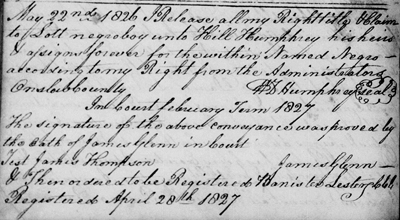 May 22nd 1826 I Release all my Right title & Claim
to Lott negro boy unto Hill Humphrey his heirs
& assigns forever for the within Named Negro
according to my Right from the Administrators
Onslow County W Humphrey Seal
In Court February Term 1827
The signature of the above conveyance was proved by
the Oath of James Glenn in Court
Test James Thompson James Glenn
& Then ordered to be Registered Banister Lester
Registered April 28th 1827